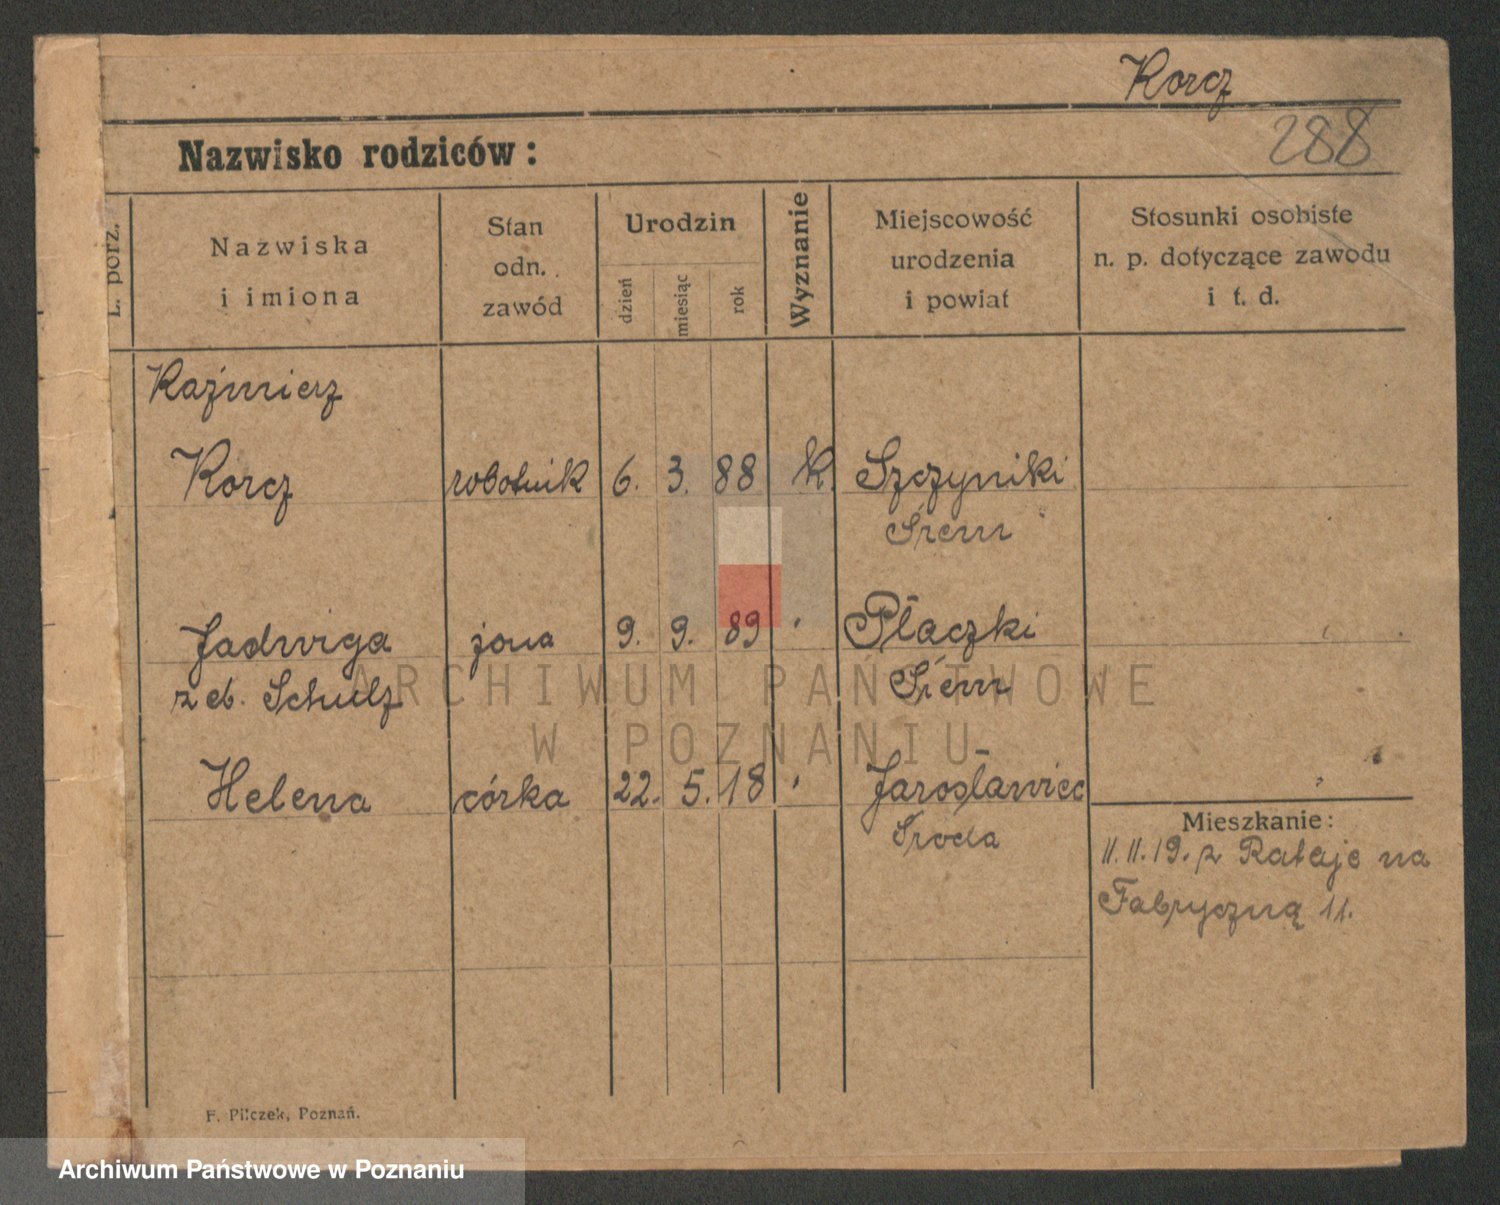 Korcz
288
Nazwisko rodziców:
L. porz.
Nazwiska
i imiona
Stan
odn.
zawód
Urodzin
dzień
miesiąc
rok
Wyznanie
Miejscowość
urodzenia
i powiat
Stosunki osobiste
n. p. dotyczące zawodu
i t. d.
Kaźmierz
Korcz robotnik 6. 3. 88 k. Szczyniki
Śrem
Jadwiga żona 9. 9. 89 Płaczki
z eb. Schulz Śrem
ARCHIWUM PAŃSTWOWE
W POZNANIU
Helena córka 22. 5. 18 Jarosławiec
Środa
Mieszkanie:
11.11.19. z Rataje na
Fabryczną 11.
F. Pilczek, Poznań.
Archiwum Państwowe w Poznaniu